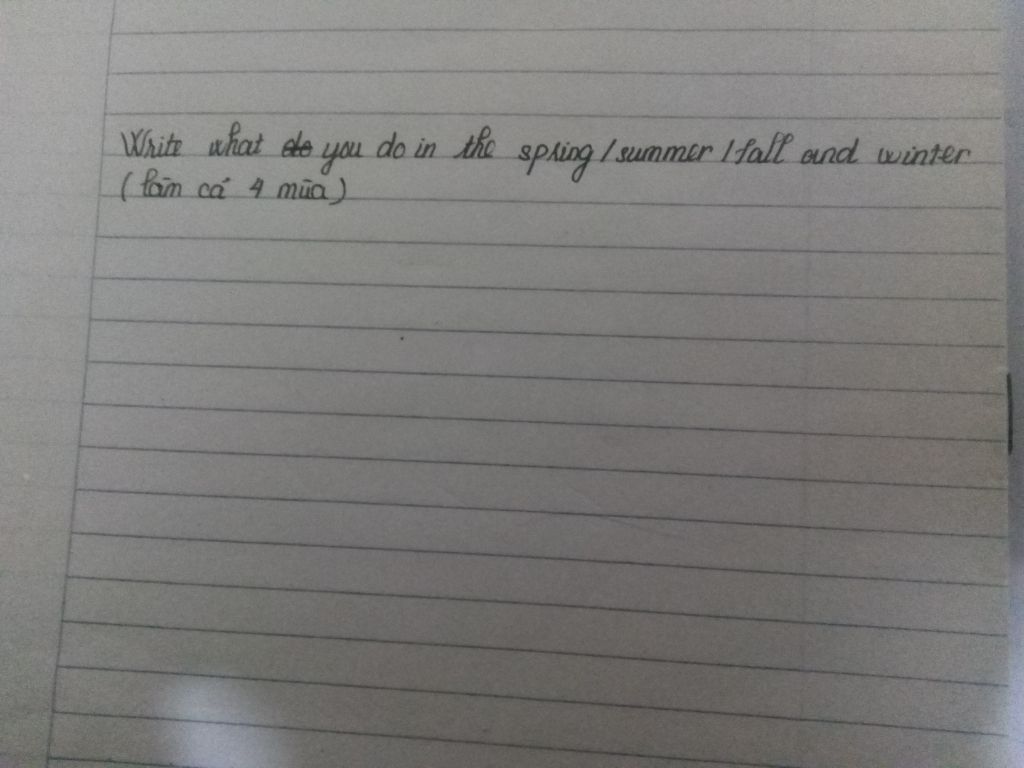 Write what do you do in the spring / summer / fall and winter
( làm cả 4 mùa )